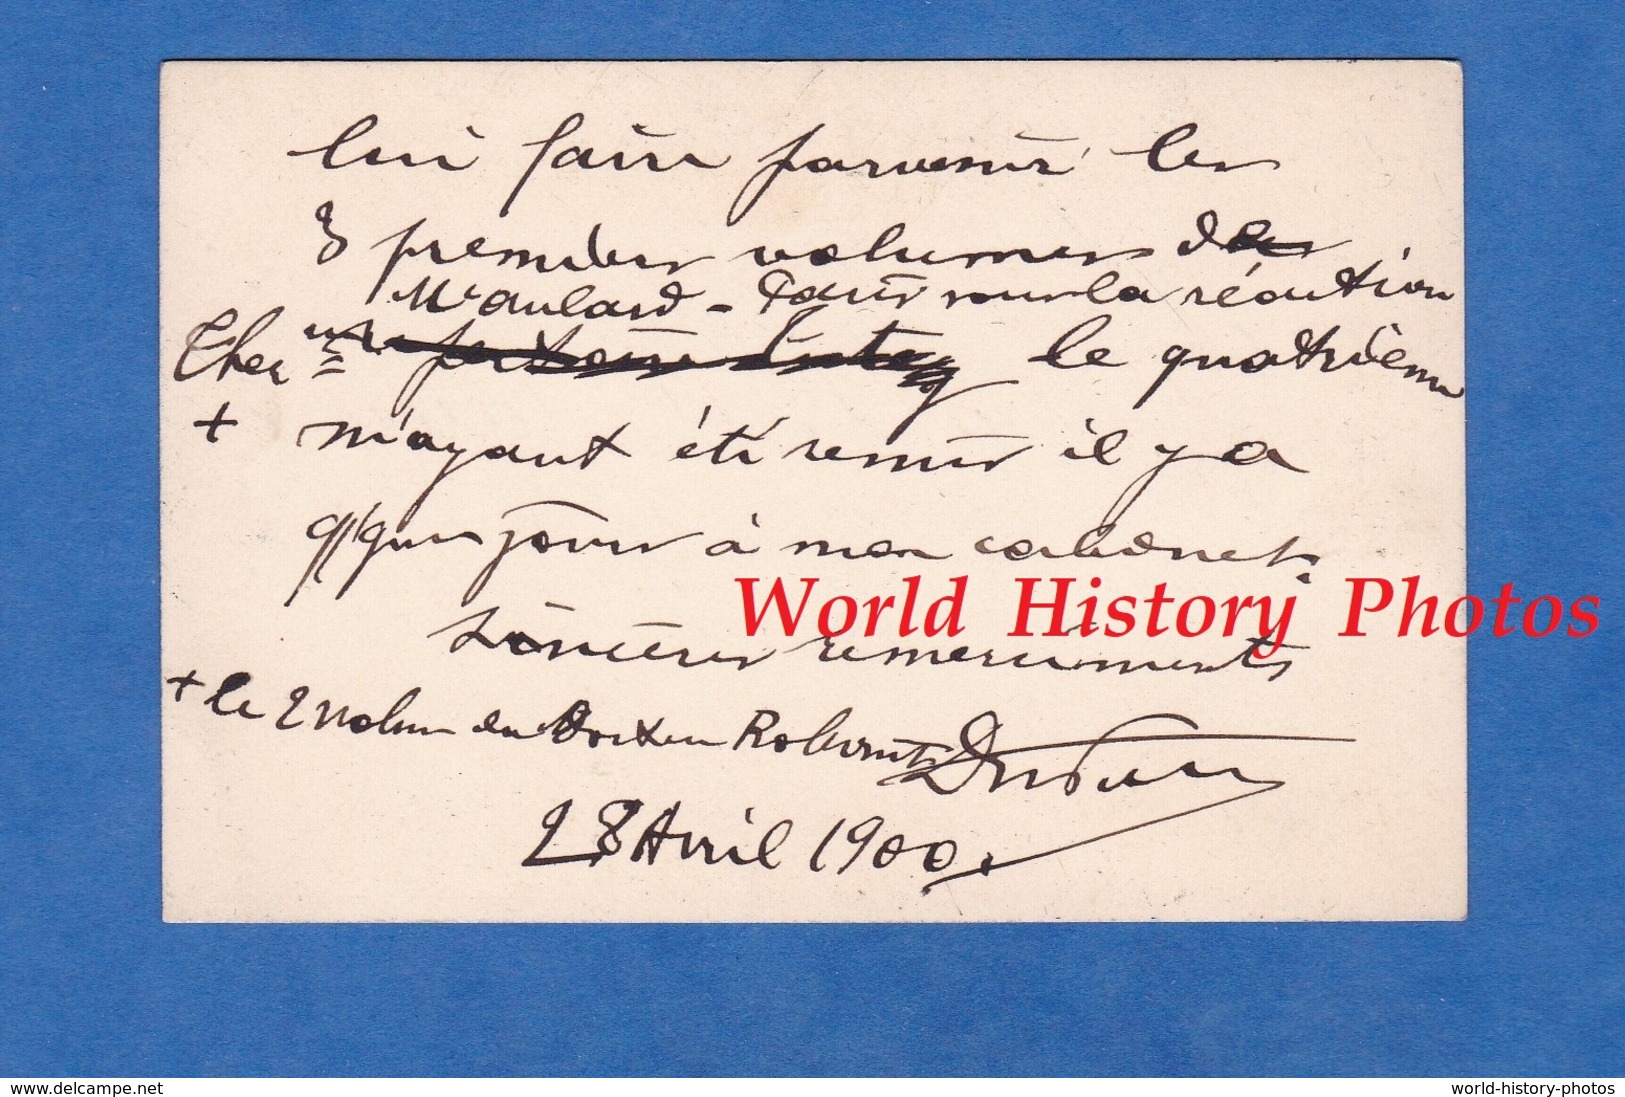 lui faire parvenir les
3 premiers volumes de
Mr Aulard - Paris sous la réaction
Ther
le quatrième
+ m'ayant été remis il y a
q'ques jours à mon cabinet.
sincères remerciments
+ le 2 volume du Docteur Robinet
28 Avril 1900.
World History Photos
www.delcampe.net
world-history-photos